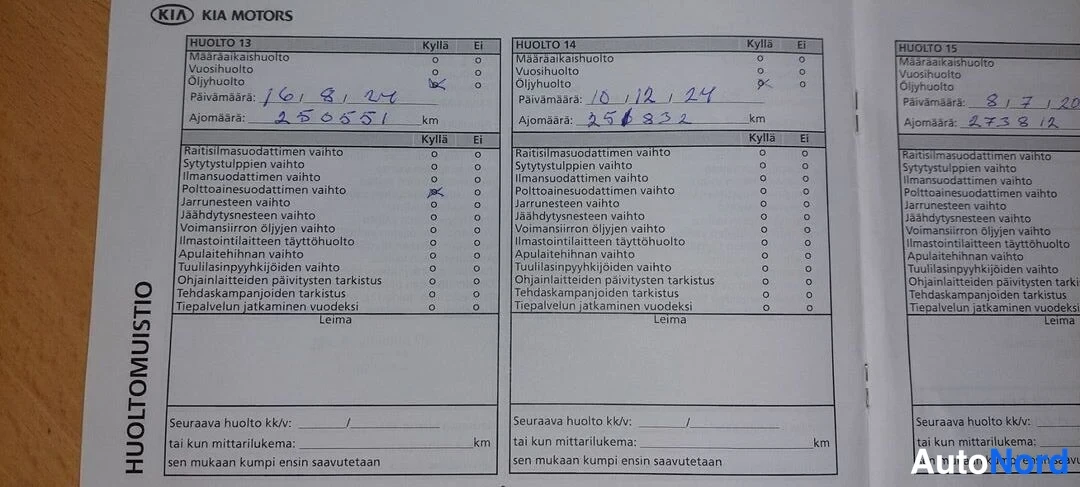 KIA KIA MOTORS
HUOLTOMUISTIO
HUOLTO 13 Kyllä Ei
Määräaikaishuolto
Vuosihuolto
Öljyhuolto
Päivämäärä: 16 / 8 / 24
Ajomäärä: 250551 km
Kyllä Ei
Raitisilmasuodattimen vaihto
Sytytystulppien vaihto
Ilmansuodattimen vaihto
Polttoainesuodattimen vaihto
Jarrunesteen vaihto
Jäähdytysnesteen vaihto
Voimansiirron öljyjen vaihto
Ilmastointilaitteen täyttöhuolto
Apulaitehihnan vaihto
Tuulilasinpyyhkijöiden vaihto
Ohjainlaitteiden päivitysten tarkistus
Tehdaskampanjoiden tarkistus
Tiepalvelun jatkaminen vuodeksi
Leima
Seuraava huolto kk/v: /
tai kun mittarilukema: km
sen mukaan kumpi ensin saavutetaan
HUOLTO 14 Kyllä Ei
Määräaikaishuolto
Vuosihuolto
Öljyhuolto
Päivämäärä: 10 / 12 / 24
Ajomäärä: 256832 km
Kyllä Ei
Raitisilmasuodattimen vaihto
Sytytystulppien vaihto
Ilmansuodattimen vaihto
Polttoainesuodattimen vaihto
Jarrunesteen vaihto
Jäähdytysnesteen vaihto
Voimansiirron öljyjen vaihto
Ilmastointilaitteen täyttöhuolto
Apulaitehihnan vaihto
Tuulilasinpyyhkijöiden vaihto
Ohjainlaitteiden päivitysten tarkistus
Tehdaskampanjoiden tarkistus
Tiepalvelun jatkaminen vuodeksi
Leima
Seuraava huolto kk/v: /
tai kun mittarilukema: km
sen mukaan kumpi ensin saavutetaan
HUOLTO 15
Määräaikaishuolto
Vuosihuolto
Öljyhuolto
Päivämäärä: 8 / 7 / 20
Ajomäärä: 273812
Raitisilmasuodattimen vaihto
Sytytystulppien vaihto
Ilmansuodattimen vaihto
Polttoainesuodattimen vaihto
Jarrunesteen vaihto
Jäähdytysnesteen vaihto
Voimansiirron öljyjen vaihto
Ilmastointilaitteen täyttöhuolto
Apulaitehihnan vaihto
Tuulilasinpyyhkijöiden vaihto
Ohjainlaitteiden päivitysten tarkis
Tehdaskampanjoiden tarkistus
Tiepalvelun jatkaminen vuodeks
Leima
Seuraava huolto kk/v:
tai kun mittarilukema:
sen mukaan kumpi ensin saavuteta
AutoNord